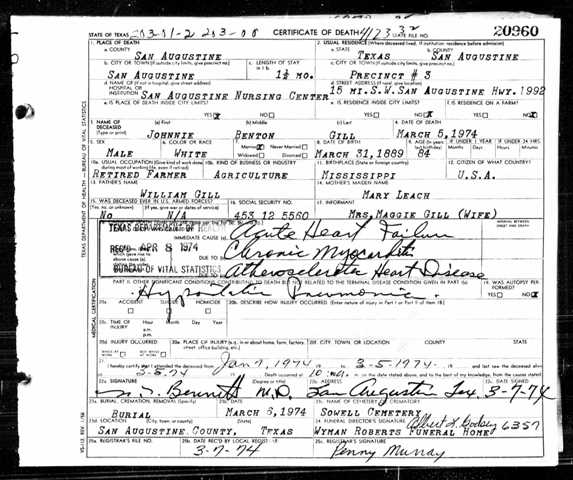 STATE OF TEXAS
CERTIFICATE OF DEATH
STATE FILE NO.
20960
1. PLACE OF DEATH
2. USUAL RESIDENCE (Where deceased lived. If institution: residence before admission)
a. COUNTY
a. STATE
b. COUNTY
SAN AUGUSTINE
TEXAS
SAN AUGUSTINE
b. CITY OR TOWN (If outside city limits, give precinct no.)
c. LENGTH OF STAY in 1 b.
c. CITY OR TOWN (If outside city limits, give precinct no.)
SAN AUGUSTINE
1½ MO.
PRECINCT # 3
d. NAME OF (If not in hospital, give street address)
HOSPITAL OR
INSTITUTION
SAN AUGUSTINE NURSING CENTER
d. STREET ADDRESS (If rural, give location)
15 MI.S.W.SAN AUGUSTINE HWY.1992
e. IS PLACE OF DEATH INSIDE CITY LIMITS?
YES X NO
e. IS RESIDENCE INSIDE CITY LIMITS?
YES NO X
f. IS RESIDENCE ON A FARM?
YES NO X
3. NAME OF DECEASED (Type or print)
(a) First
(b) Middle
(c) Last
4. DATE OF DEATH
JOHNNIE
BENTON
GILL
MARCH 5,1974
5. SEX
6. COLOR OR RACE
7. Married X Never Married
Widowed Divorced
8. DATE OF BIRTH
9. AGE (In years last birthday)
IF UNDER 1 YEAR
IF UNDER 24 HRS.
Months Days Hours Min.
MALE
WHITE
MARCH 31,1889
84
10a. USUAL OCCUPATION (Give kind of work done during most of working life, even if retired)
10b. KIND OF BUSINESS OR INDUSTRY
11. BIRTHPLACE (State or foreign country)
12. CITIZEN OF WHAT COUNTRY?
RETIRED FARMER
AGRICULTURE
MISSISSIPPI
U.S.A.
13. FATHER'S NAME
14. MOTHER'S MAIDEN NAME
WILLIAM GILL
MARY LEACH
15. WAS DECEASED EVER IN U.S. ARMED FORCES?
(Yes, no, or unknown) (If yes, give war or dates of service)
16. SOCIAL SECURITY NO.
17. INFORMANT
NO
N/A
453 12 5560
MRS,MAGGIE GILL (WIFE)
INTERVAL BETWEEN ONSET AND DEATH
TEXAS DEPARTMENT OF HEALTH
REC'D APR 8 1974
BUREAU OF VITAL STATISTICS
IMMEDIATE CAUSE (a)
Acute Heart Failure
DUE TO
Chronic Myocarditis
DUE TO
Atherosclerotic Heart Disease
PART II. OTHER SIGNIFICANT CONDITIONS CONTRIBUTING TO DEATH BUT NOT RELATED TO THE TERMINAL DISEASE CONDITION GIVEN IN PART I(a)
19. WAS AUTOPSY PERFORMED?
YES NO X
Hypostatic Pneumonia
20a. ACCIDENT SUICIDE HOMICIDE
20b. DESCRIBE HOW INJURY OCCURRED. (Enter nature of injury in Part I or Part II of item 18.)
20c. TIME OF INJURY
Hour Month Day Year
a.m.
p.m.
20d. INJURY OCCURRED
20e. PLACE OF INJURY (e.g., in or about home, farm, factory, street, office building, etc.)
20f. CITY, TOWN, OR LOCATION
COUNTY
STATE
21. I hereby certify that I attended the deceased from
Jan 7, 1974
to
3-5-1974
and last saw the deceased alive on
3-5-74
Death occurred at
10
m. on the date stated above, and to the best of my knowledge, from the causes stated.
22a. SIGNATURE
(Degree or title)
22b. ADDRESS
22c. DATE SIGNED
Bennett M.D.
San Augustine Tex.
3-7-74
23a. BURIAL, CREMATION, REMOVAL (Specify)
23b. DATE
23c. NAME OF CEMETERY OR CREMATORY
BURIAL
MARCH 6,1974
SOWELL CEMETERY
23d. LOCATION (City, town, or county) (State)
24. FUNERAL DIRECTOR'S SIGNATURE
Albert L. Godsey 6357
SAN AUGUSTINE COUNTY, TEXAS
WYMAN ROBERTS FUNERAL HOME
25a. REGISTRAR'S FILE NO.
25b. DATE REC'D BY LOCAL REGISTRAR
25c. REGISTRAR'S SIGNATURE
3-7-74
Penny Murray
TEXAS DEPARTMENT OF HEALTH — BUREAU OF VITAL STATISTICS
MEDICAL CERTIFICATION